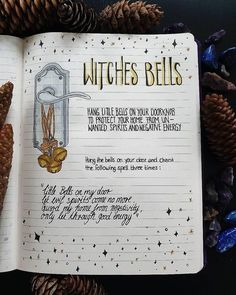 WITCHES BELLS
HANG LITTLE BELLS ON YOUR DOORKNOB
TO PROTECT YOUR HOME FROM UN-
WANTED SPIRITS AND NEGATIVE ENERGY
Hang the bells on your door and chant
the following spell three times:
"Little Bells on my door
let evil spirits come no more
guard my home from negativity
only let through good energy"